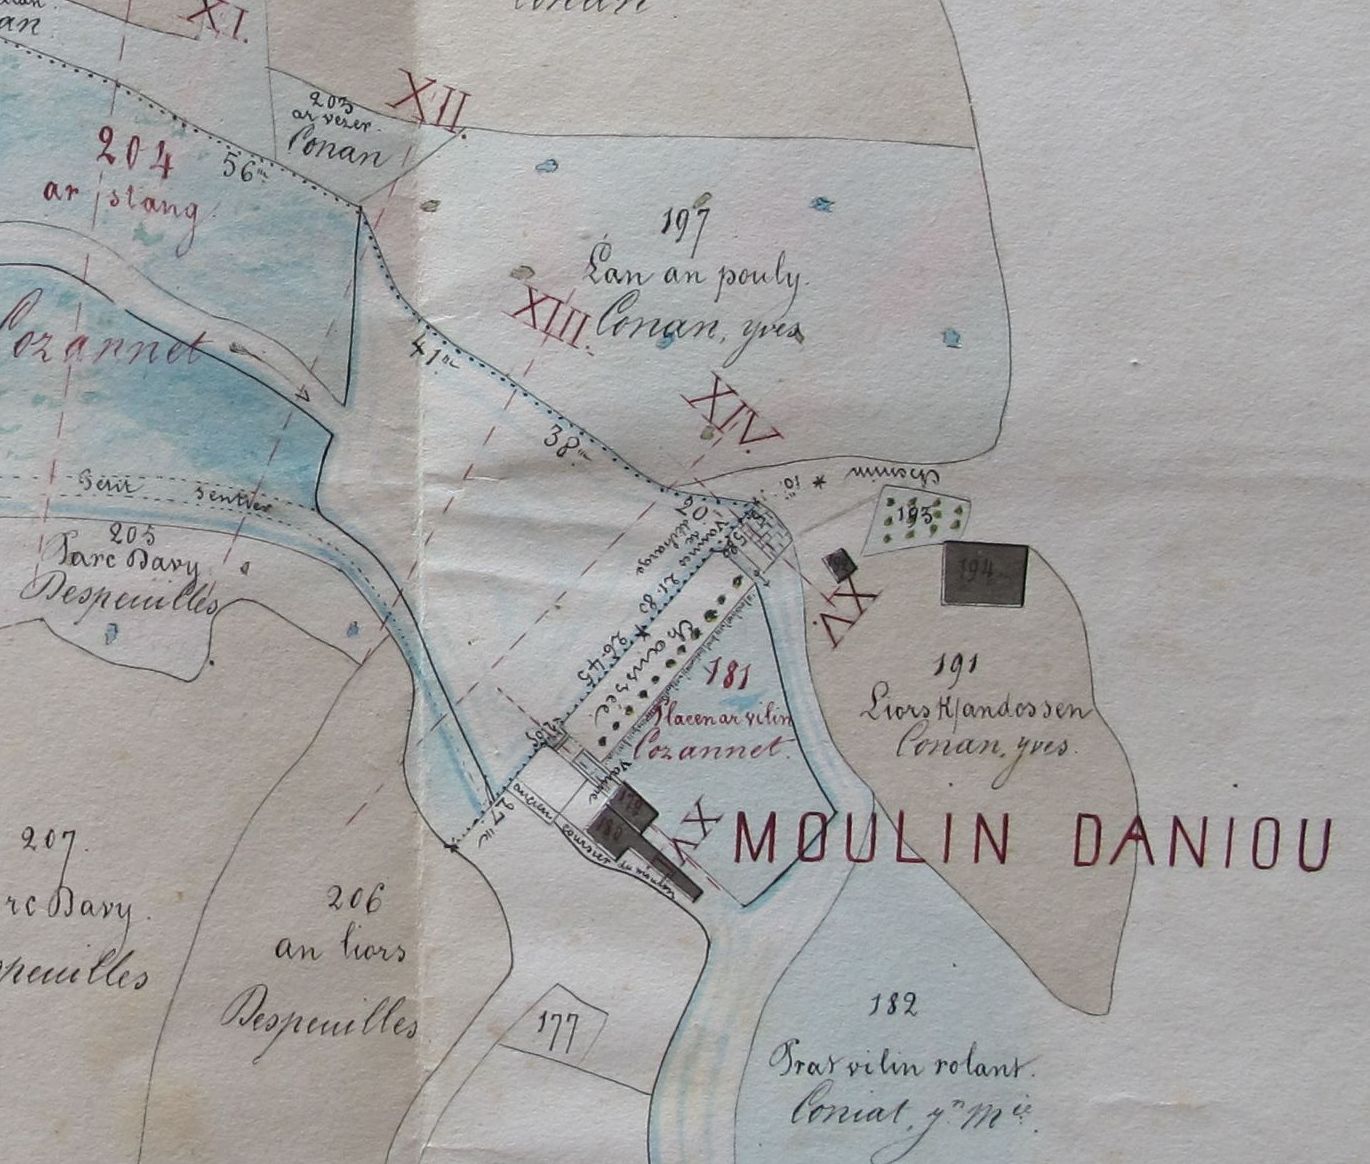 an
Conan
XI.
XII.
203
ar vezer.
Conan
204
ar stang
56m
197
Lan an pouly.
Conan, yves
XIII.
41m
38m
XIV.
Cozannet
Petit sentier
205
Parc Davy
Despeuilles
Chemin
10m
193
194
XV
191
Liors K/andossen
Conan, yves.
Vannes de décharge
21.85
26.45
Chaussée
181
Placen ar vilin
Cozannet.
Vanne
27m
ancien coursier du moulin
179
180
XV
MOULIN DANIOU
207.
rc Davy.
speuilles
206
an liors
Despeuilles
177
182
Prat vilin rolant.
Coniat, yn Mie.